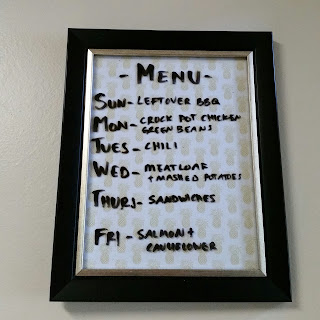 - MENU -
SUN - LEFTOVER BBQ
MON - CROCK POT CHICKEN
GREEN BEANS
TUES - CHILI
WED - MEATLOAF
+ MASHED POTATOES
THURS - SANDWICHES
FRI - SALMON +
CAULIFLOWER